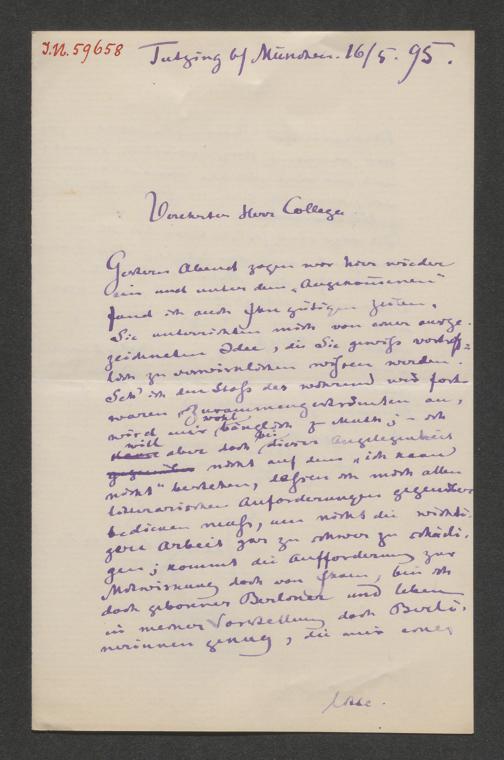 I.N. 59658
Tutzing b/ München. 16/5. 95.
Verehrter Herr College
Gestern Abend zogen wir hier wieder
ein und unter dem „Angekommenen"
fand ich auch Ihre gütigen Zeilen.
Sie unterrichten mich von einer ausge-
zeichneten Idee, die Sie gewiss vortreff-
lich zu verwirklichen wissen werden.
Seh' ich den Stoss des während wir fort
waren Zusammengeströmten an,
wird mir wohl bänglich zu Muth; – ich
will aber doch bei dieser Angelegenheit
nicht auf dem „ich kann
nicht" bestehen, dessen ich mich allen
literarischen Anforderungen gegenüber
bedienen muss, um nicht die wichti-
gere Arbeit gar zu schwer zu schädi-
gen; kommt die Aufforderung zur
Mitwirkung doch von Ihnen, bin ich
doch geborener Berliner und leben
in meiner Vorstellung doch Berli-
nerinnen genug, die mir